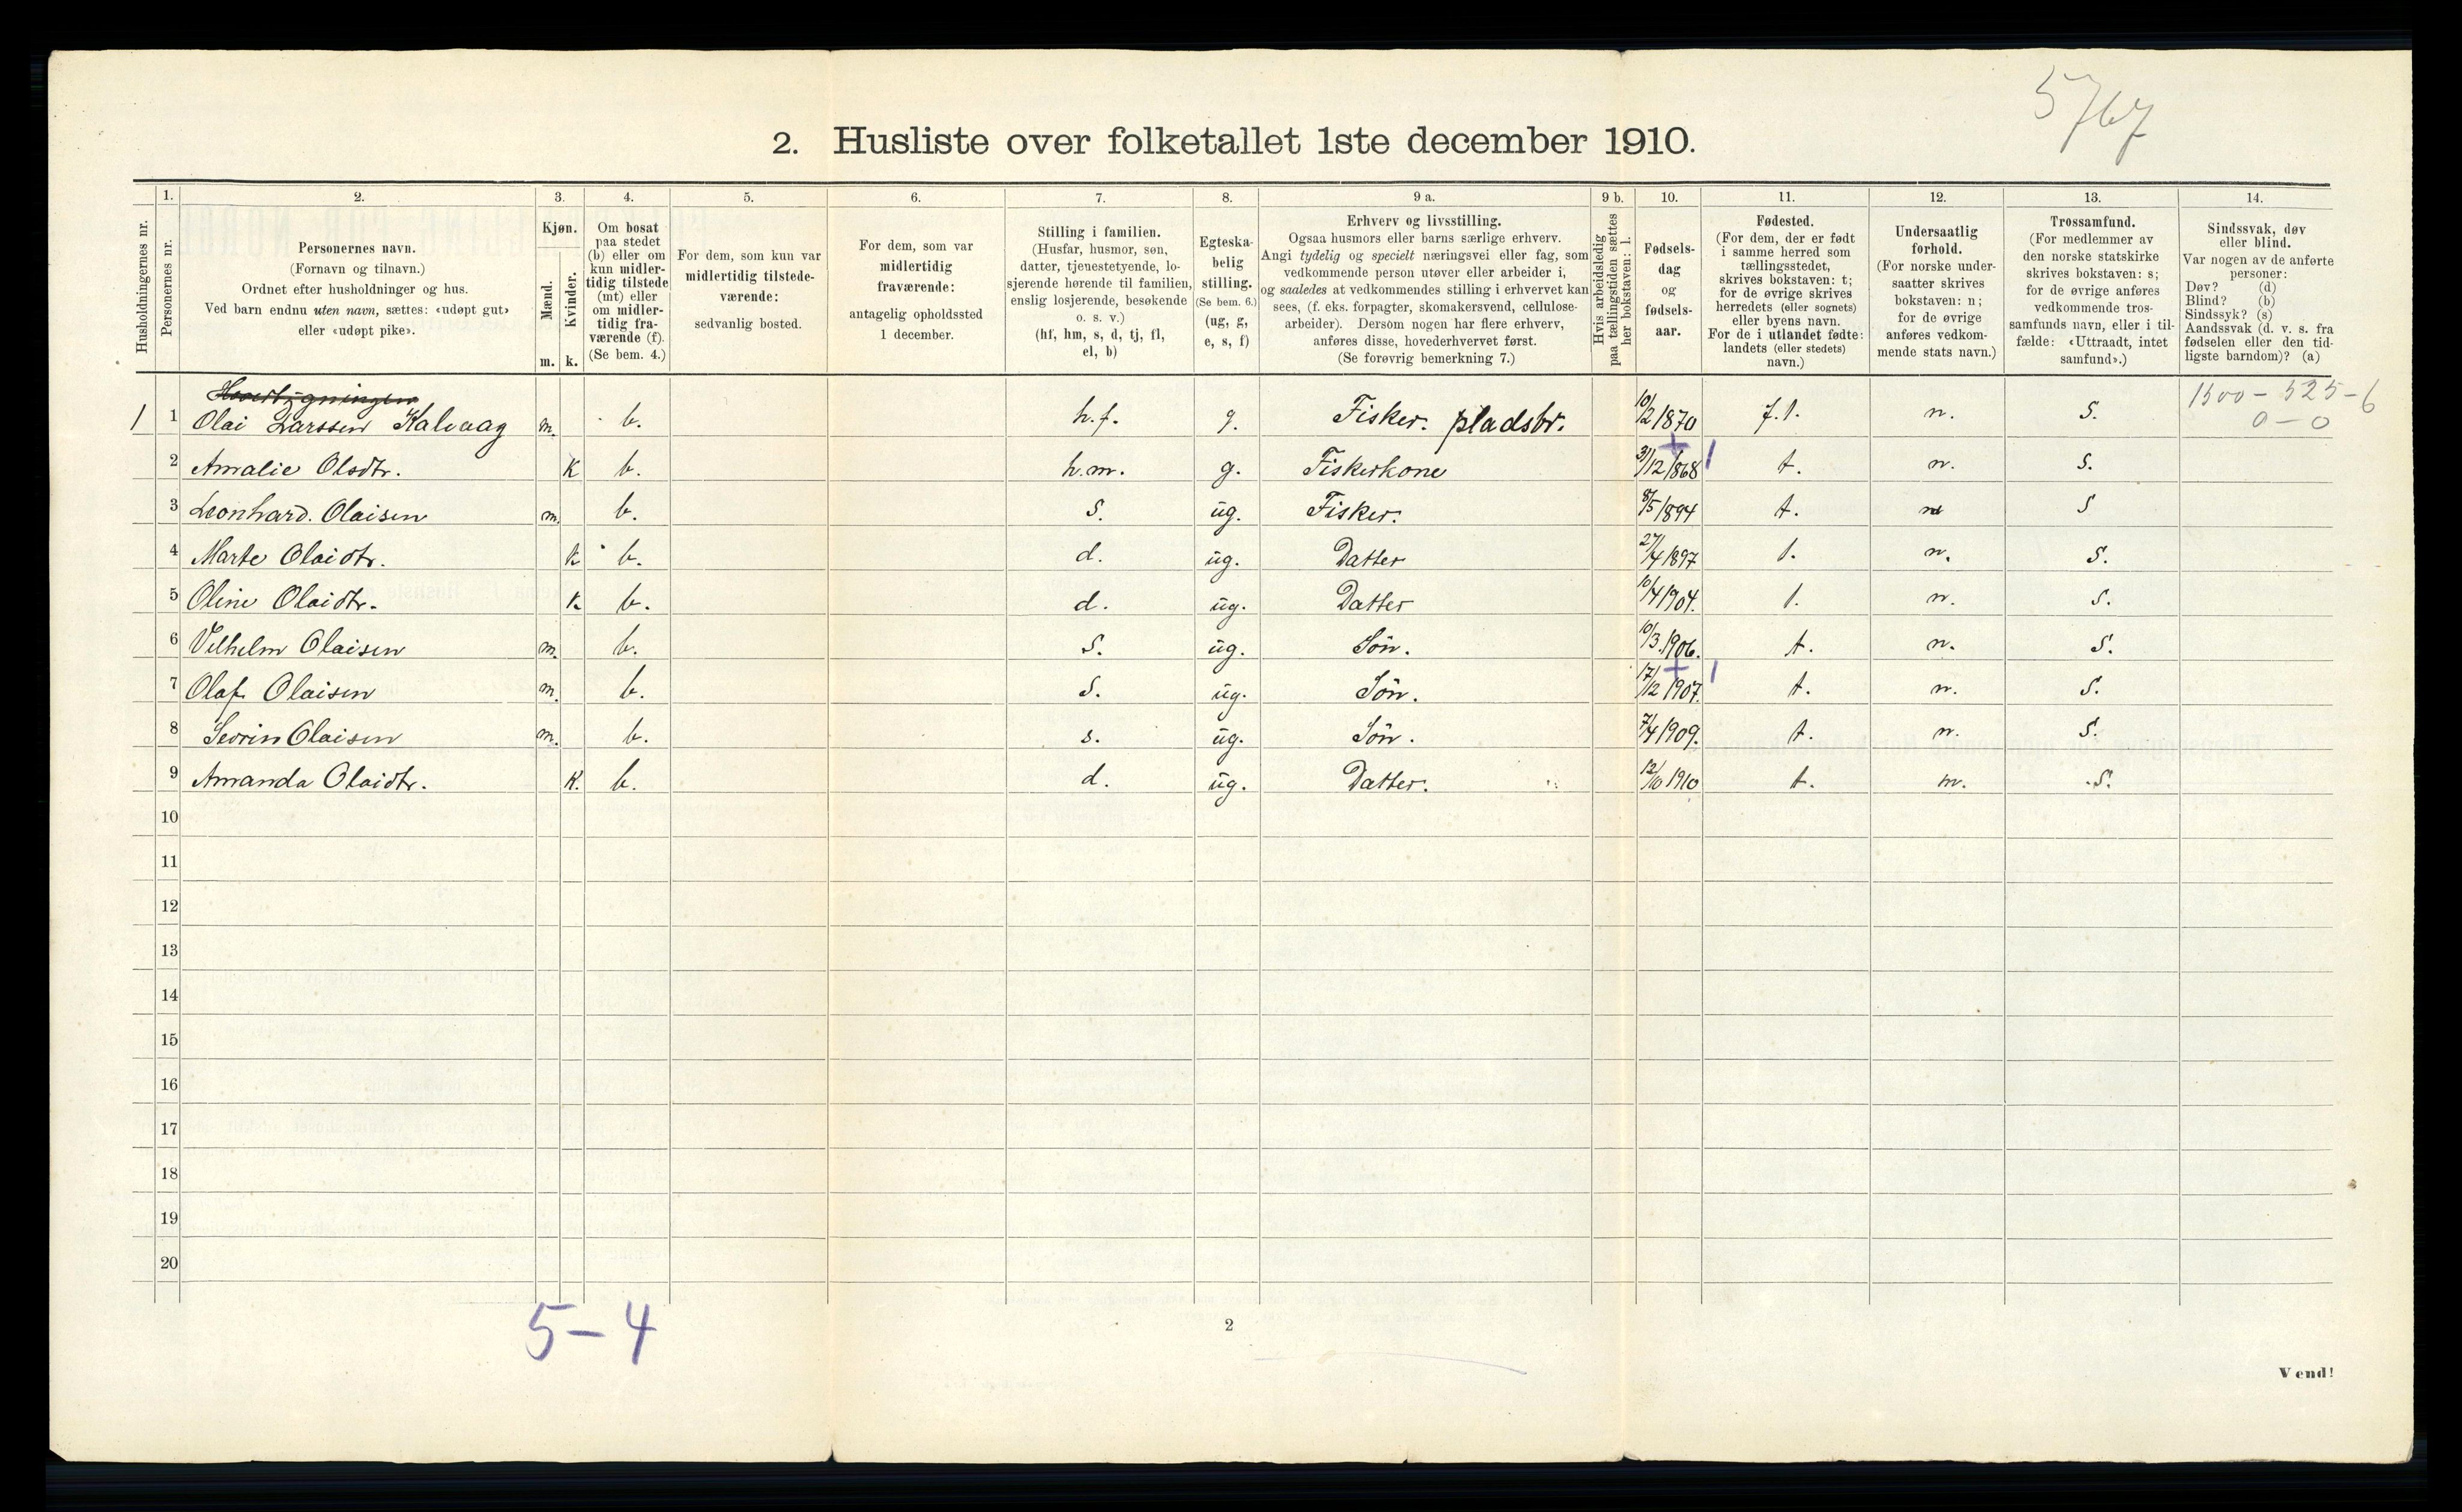 5767
2. Husliste over folketallet 1ste december 1910.
Husholdningernes nr.
1.
Personernes nr.
2.
Personernes navn.
(Fornavn og tilnavn.)
Ordnet efter husholdninger og hus.
Ved barn endnu uten navn, sættes: «udøpt gut»
eller «udøpt pike».
3.
Kjøn.
Mænd.
Kvinder.
m. k.
4.
Om bosat
paa stedet
(b) eller om
kun midler-
tidig tilstede
(mt) eller
om midler-
tidig fra-
værende (f).
(Se bem. 4.)
5.
For dem, som kun var
midlertidig tilstede-
værende:
sedvanlig bosted.
6.
For dem, som var
midlertidig
fraværende:
antagelig opholdssted
1 december.
7.
Stilling i familien.
(Husfar, husmor, søn,
datter, tjenestetyende, lo-
sjerende hørende til familien,
enslig losjerende, besøkende
o. s. v.)
(hf, hm, s, d, tj, fl,
el, b)
8.
Egteska-
belig
stilling.
(Se bem. 6.)
(ug, g,
e, s, f)
9 a.
Erhverv og livsstilling.
Ogsaa husmors eller barns særlige erhverv.
Angi tydelig og specielt næringsvei eller fag, som
vedkommende person utøver eller arbeider i,
og saaledes at vedkommendes stilling i erhvervet kan
sees, (f. eks. forpagter, skomakersvend, cellulose-
arbeider). Dersom nogen har flere erhverv,
anføres disse, hovederhvervet først.
(Se forøvrig bemerkning 7.)
9 b.
Hvis arbeidsledig
paa tællingstiden sættes
her bokstaven: l.
10.
Fødsels-
dag
og
fødsels-
aar.
11.
Fødested.
(For dem, der er født
i samme herred som
tællingsstedet,
skrives bokstaven: t;
for de øvrige skrives
herredets (eller sognets)
eller byens navn.
For de i utlandet fødte:
landets (eller stedets)
navn.)
12.
Undersaatlig
forhold.
(For norske under-
saatter skrives
bokstaven: n;
for de øvrige
anføres vedkom-
mende stats navn.)
13.
Trossamfund.
(For medlemmer av
den norske statskirke
skrives bokstaven: s;
for de øvrige anføres
vedkommende tros-
samfunds navn, eller i til-
fælde: «Uttraadt, intet
samfund».)
14.
Sindssvak, døv
eller blind.
Var nogen av de anførte
personer:
Døv? (d)
Blind? (b)
Sindssyk? (s)
Aandssvak (d. v. s. fra
fødselen eller den tid-
ligste barndom)? (a)
1500 - 525 - 6
0 - 0
1 1 Olai Larssen Kalvaag m. b. h.f. g. Fisker. pladsbr. 10/2 1870 n. S.
2 Amalie Olsdtr. K b. h.m. g. Fiskerkone 31/12 1868 t. n. S.
3 Leonhard. Olaisen m. b. S. ug. Fisker. 8/5 1894 t. n S
4 Marte Olaidtr. K b. d. ug. Datter 27/4 1897 t. n. S.
5 Oline Olaidtr. K b. d. ug. Datter 10/4 1904. t. n. S.
6 Vilhelm Olaisen m. b. S. ug. Sön. 10/3 1906. t. n. S.
7 Olaf Olaisen m. b. S. ug. Sön. 17/12 1907. t. n. S.
8 Sevrin Olaisen m. b. s. ug. Sön. 7/4 1909. t. n. S.
9 Amanda Olaidtr. K. b. d. ug. Datter. 12/10 1910 t. n. S.
10
11
12
13
14
15
16
17
18
19
20
5 - 4
2
Vend!